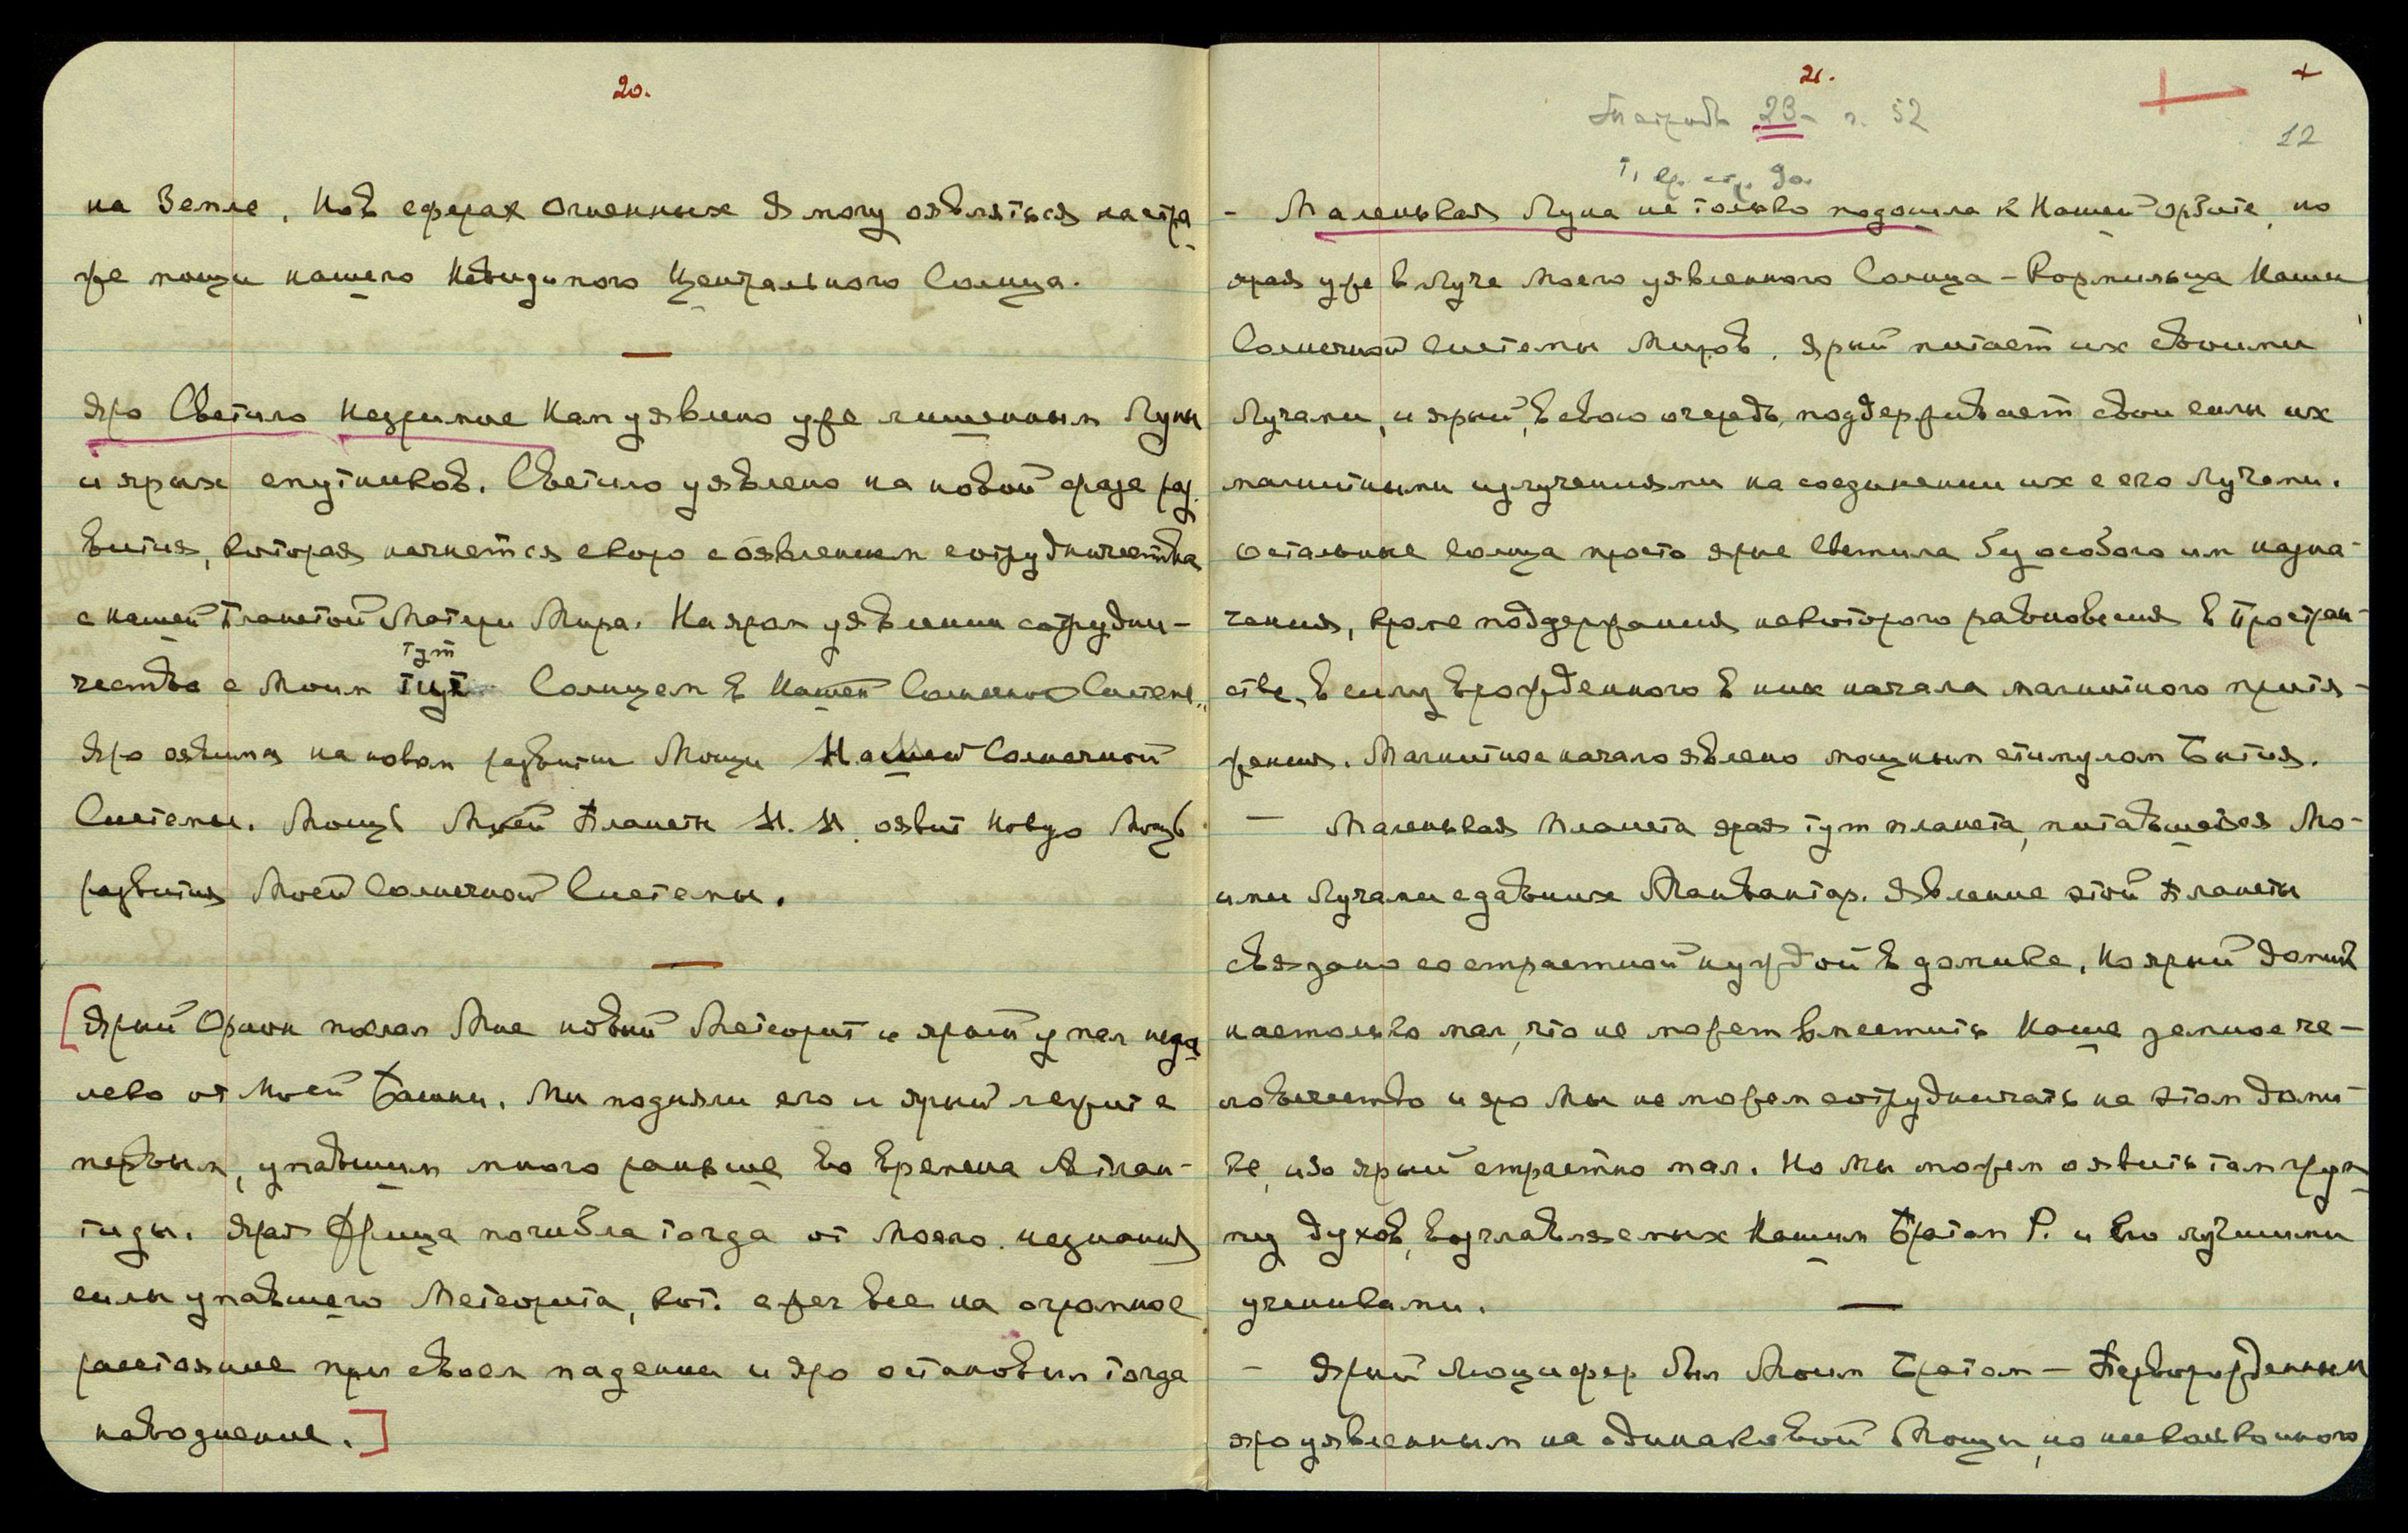 20.
на Земле. Но в сферах Огненных Я могу оявляться на стра
же мощи нашего Невидимого Центрального Солнца.
Яро Светило Незримое Нам уявлено уже лишенным Луны
и ярых спутников. Светило уявлено на новой фазе раз
вития, которая начнется скоро с оявлением сотрудничества
с нашей Планетой Матери Мира. На яром уявлении сотрудни-
тут
чества с Моим Солнцем в Нашей Солнечной Системе
Яро оявится на новом развитии Мощи Нашей Солнечной
Системы. Мощь Моей Планеты Н. Н. оявит Новую Мощь
развития Моей Солнечной Системы.
[Ярый Орион послал Мне новый Метеорит и ярый упал неда
леко от Моей Башни. Мы подняли его и ярый лежит с
первым, упавшим много раньше во времена Атлан-
тиды. Ярая Жрица погибла тогда от Моего незнания
силы упавшего Метеорита, кот. сжег все на огромное
расстояние при своем падении и яро остановил тогда
наводнение.]
21.
+
Тетрадь 23- г. 52
12
стр. 90.
- Маленькая Луна не только подошла к Нашей орбите, но
ярая уже в Луче Моего уявленного Солнца - Кормильца Нашей
Солнечной Системы Миров. Ярый питает их своими
Лучами, и ярый, в свою очередь, поддерживает свои силы их
магнитными излучениями на соединении их с его Лучами.
Остальные солнца просто ярые Светила без особого им назна-
чения, кроме поддержания некоторого равновесия в Простран-
стве, в силу врожденного в них начала магнитного притя-
жения. Магнитное начало явлено мощным стимулом Бытия.
- Маленькая Планета ярая тут планета, питавшаяся Мо-
ими Лучами с давних Манвантар. Явление этой Планеты
связано со страстной нуждой в домике. Но ярый домик
настолько мал, что не может вместить Наше земное че-
ловечество и яро Мы не можем сотрудничать на этом доми-
ке, ибо ярый страстно мал. Но Мы можем оявить там груп
пу духов, возглавляемых Нашим Братом Р. и Его лучшими
учениками.
- Ярый Люцифер был Моим Братом - Перворожденным
яро уявленным на одинаковой Мощи, но несколько иного